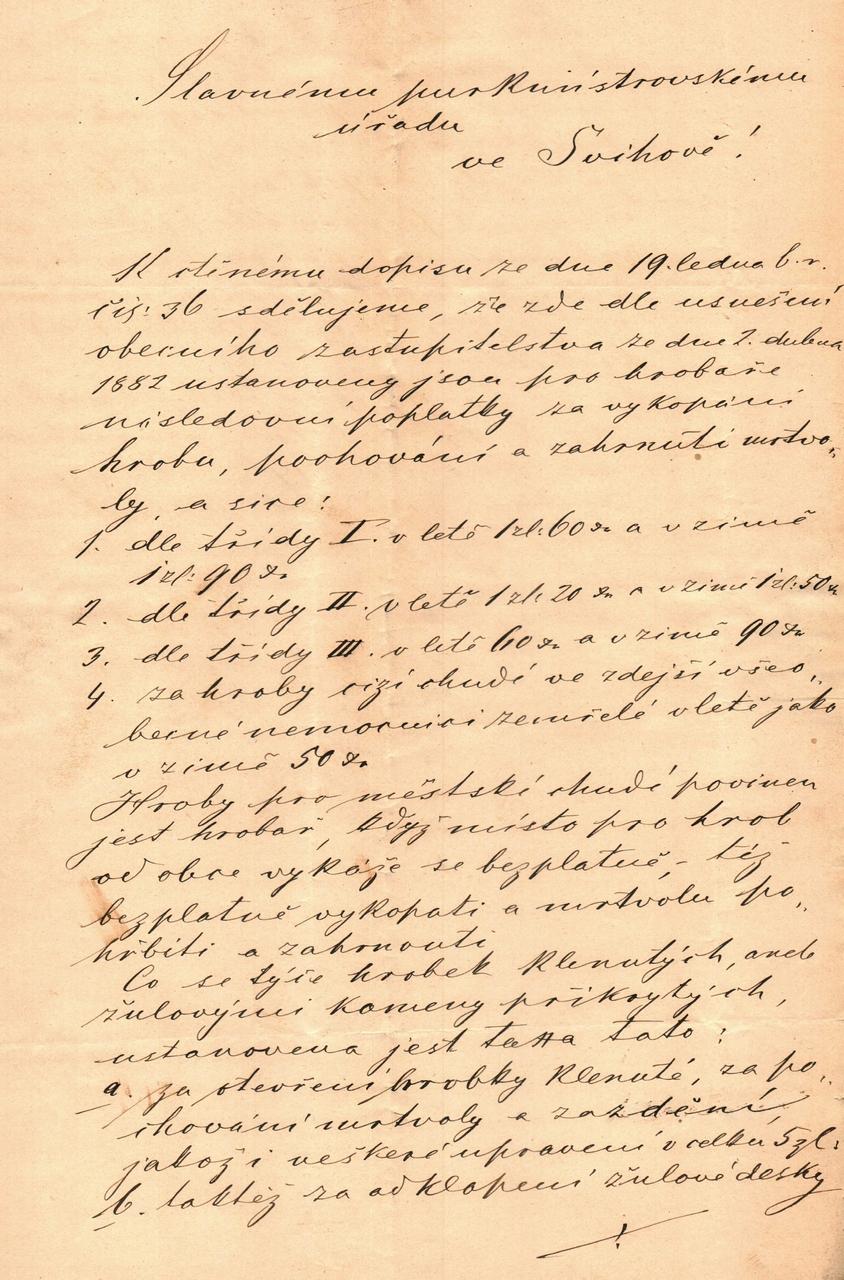 Slavnému purkmistrovskému
úřadu
ve Švihově!
K ctěnému dopisu ze dne 19. ledna b. r.
čís: 36 sdělujeme, že zde dle usnešení
obecního zastupitelstva ze dne 2. dubna
1882 ustanoveny jsou pro hrobaře
následovní poplatky za vykopání
hrobu, pochování a zahrnutí mrtvo„
ly, a sice:
1. dle třídy I. v letě 1 zl: 60 kr a v zimě
1 zl: 90 kr
2. dle třídy II. v letě 1 zl: 20 kr a v zimě 1 zl: 50 kr
3. dle třídy III. v letě 60 kr a v zimě 90 kr
4. za hroby cizí chudí ve zdejší všeo„
becné nemocnici zemřelé v letě jako
v zimě 50 kr
Hroby pro městské chudí povinen
jest hrobař, když místo pro hrob
od obce vykáže se bezplatně, - též
bezplatně vykopati a mrtvolu po„
hřbíti a zahrnouti
Co se týče hrobek klenutých, aneb
žulovými kameny přikrytých,
ustanovena jest taxa tato:
a. za otevření hrobky klenuté, za po„
chování mrtvoly a zazdění,
jakož i veškeré upravení v celku 5 zl:
b. taktéž za odklopení žulové desky
./.